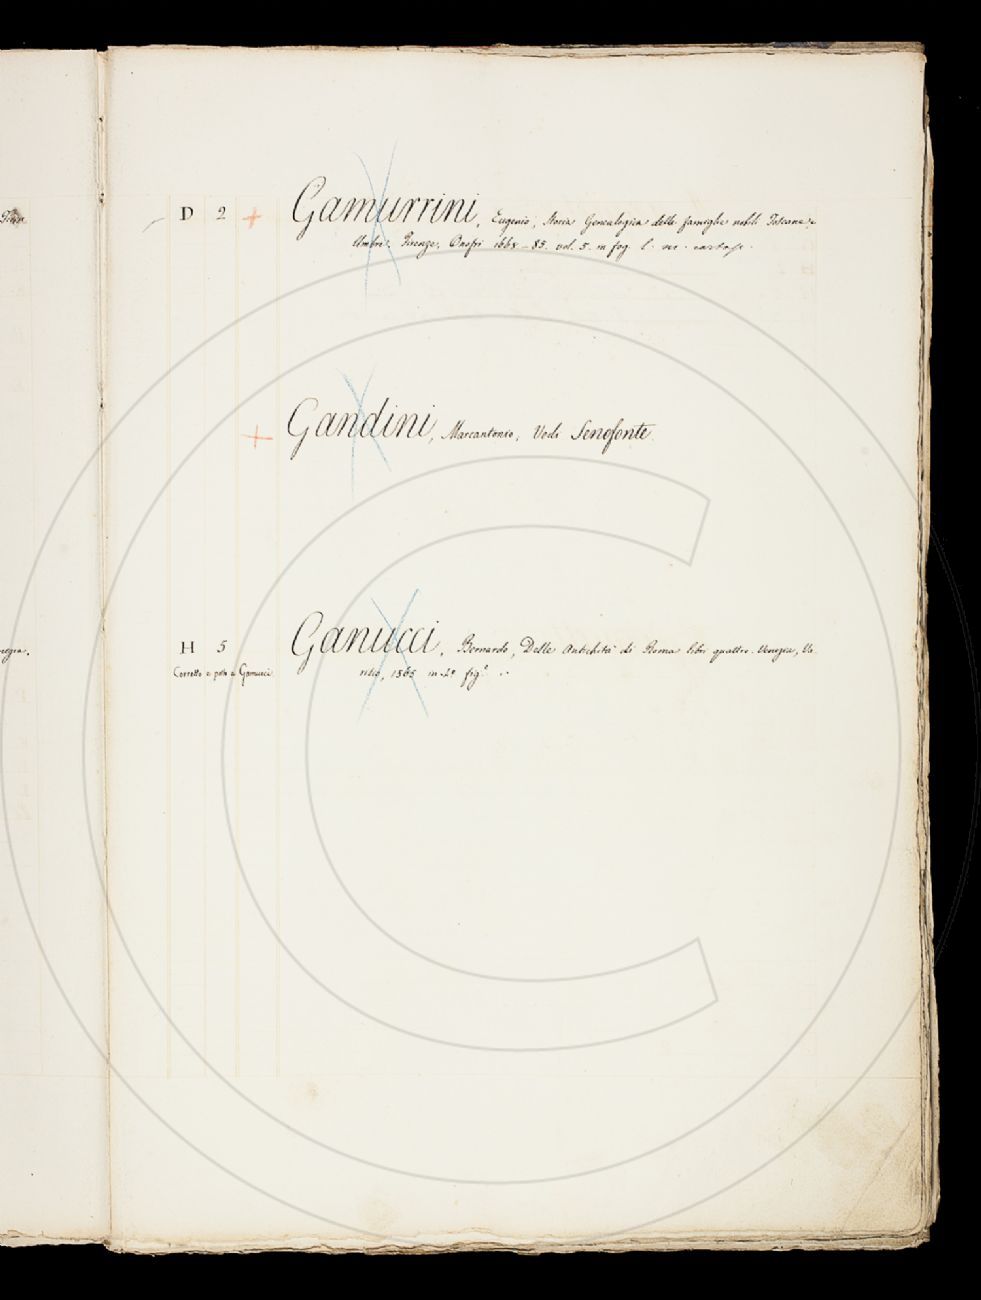 D 2 + Gamurrini, Eugenio, Storia Genealogica delle famiglie nobili Toscane e
Umbre. Firenze, Onofri 1668-85. vol. 5. in fog. l.
+ Gandini, Marcantonio, Vedi Senofonte
H 5 Ganucci, Bernardo, Delle Antichità di Roma libri quattro. Venezia, Va
Corretto e posto a Gamucci. risco, 1565 in 4º fig.